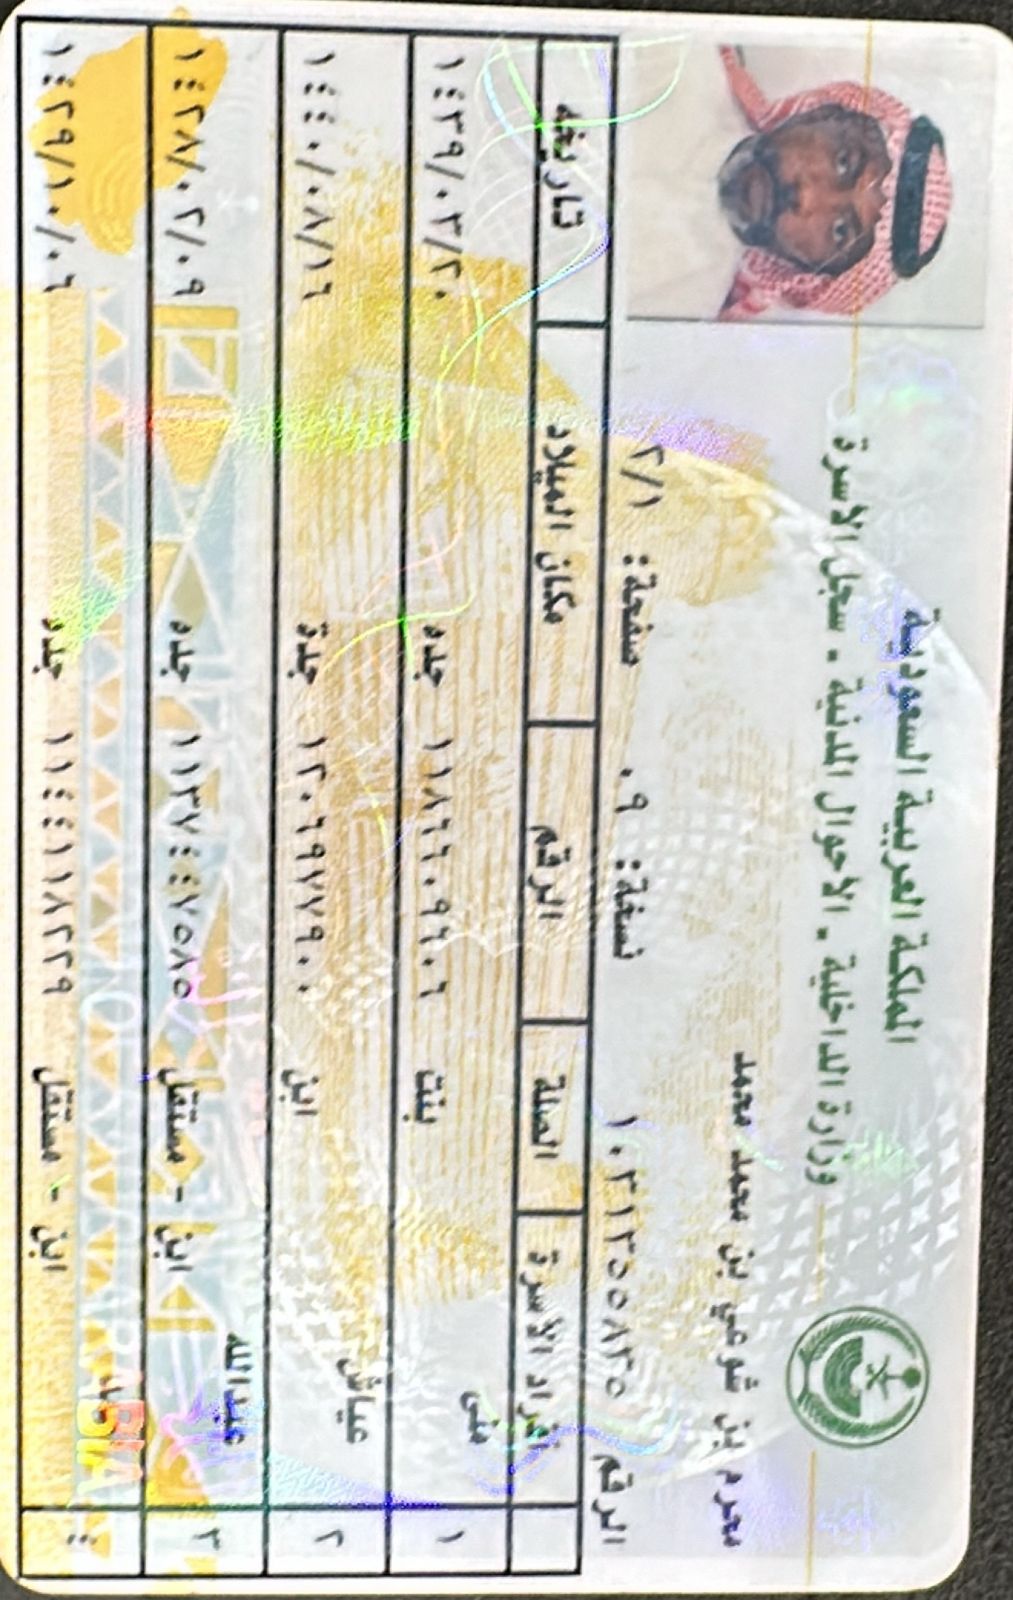 المملكة العربية السعودية
وزارة الداخلية - الأحوال المدنية - سجل الأسرة
محرم بن شوعي بن محمد محمد
الرقم ١٠٣١٣٥٥٨٣٥ نسخة: ٠٩ صفحة: ٢/١
أفراد الأسرة الصلة الرقم مكان الميلاد تاريخه
١ منى بنت ١١٨٦٦٠٩٦٠٦ جده ١٤٣٩/٠٣/٢٠
٢ عياش ابن ١٢٠٦٩٧٧٩٠٠ جدة ١٤٤٠/٠٨/١٦
٣ عبدالله ابن - مستقل ١١٣٧٤٤٧٥٨٥ جده ١٤٢٨/٠٢/٠٩
٤ ابن - مستقل ١١٤٤١١٨٢٢٩ جده ١٤٢٩/١٠/٠٦